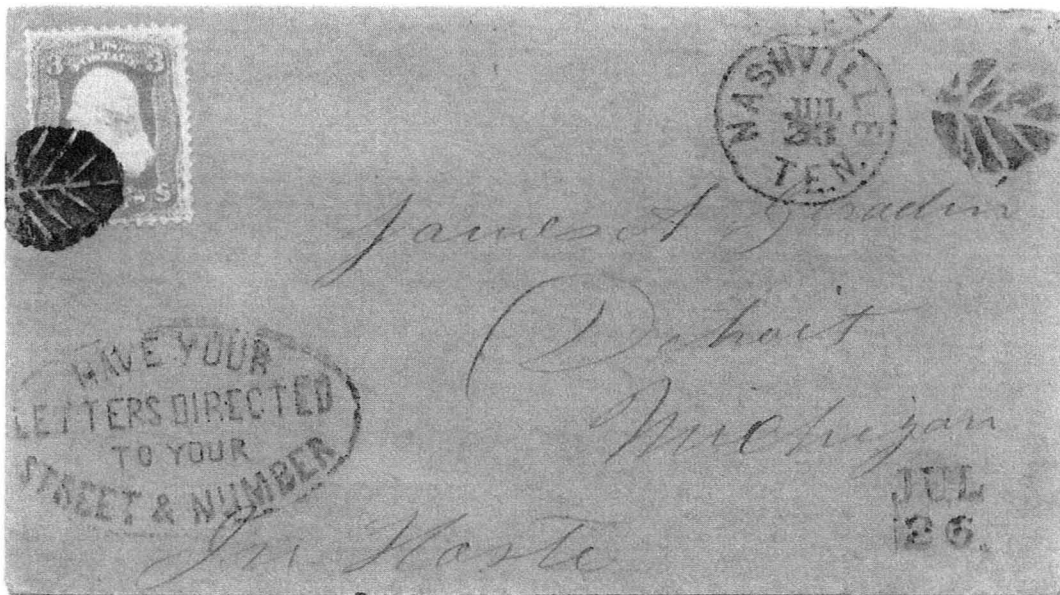 3 3
NASHVILLE
JUL
23
TEN.
James A
Detroit
Michigan
HAVE YOUR
LETTERS DIRECTED
TO YOUR
STREET & NUMBER
JUL
26.
In Haste